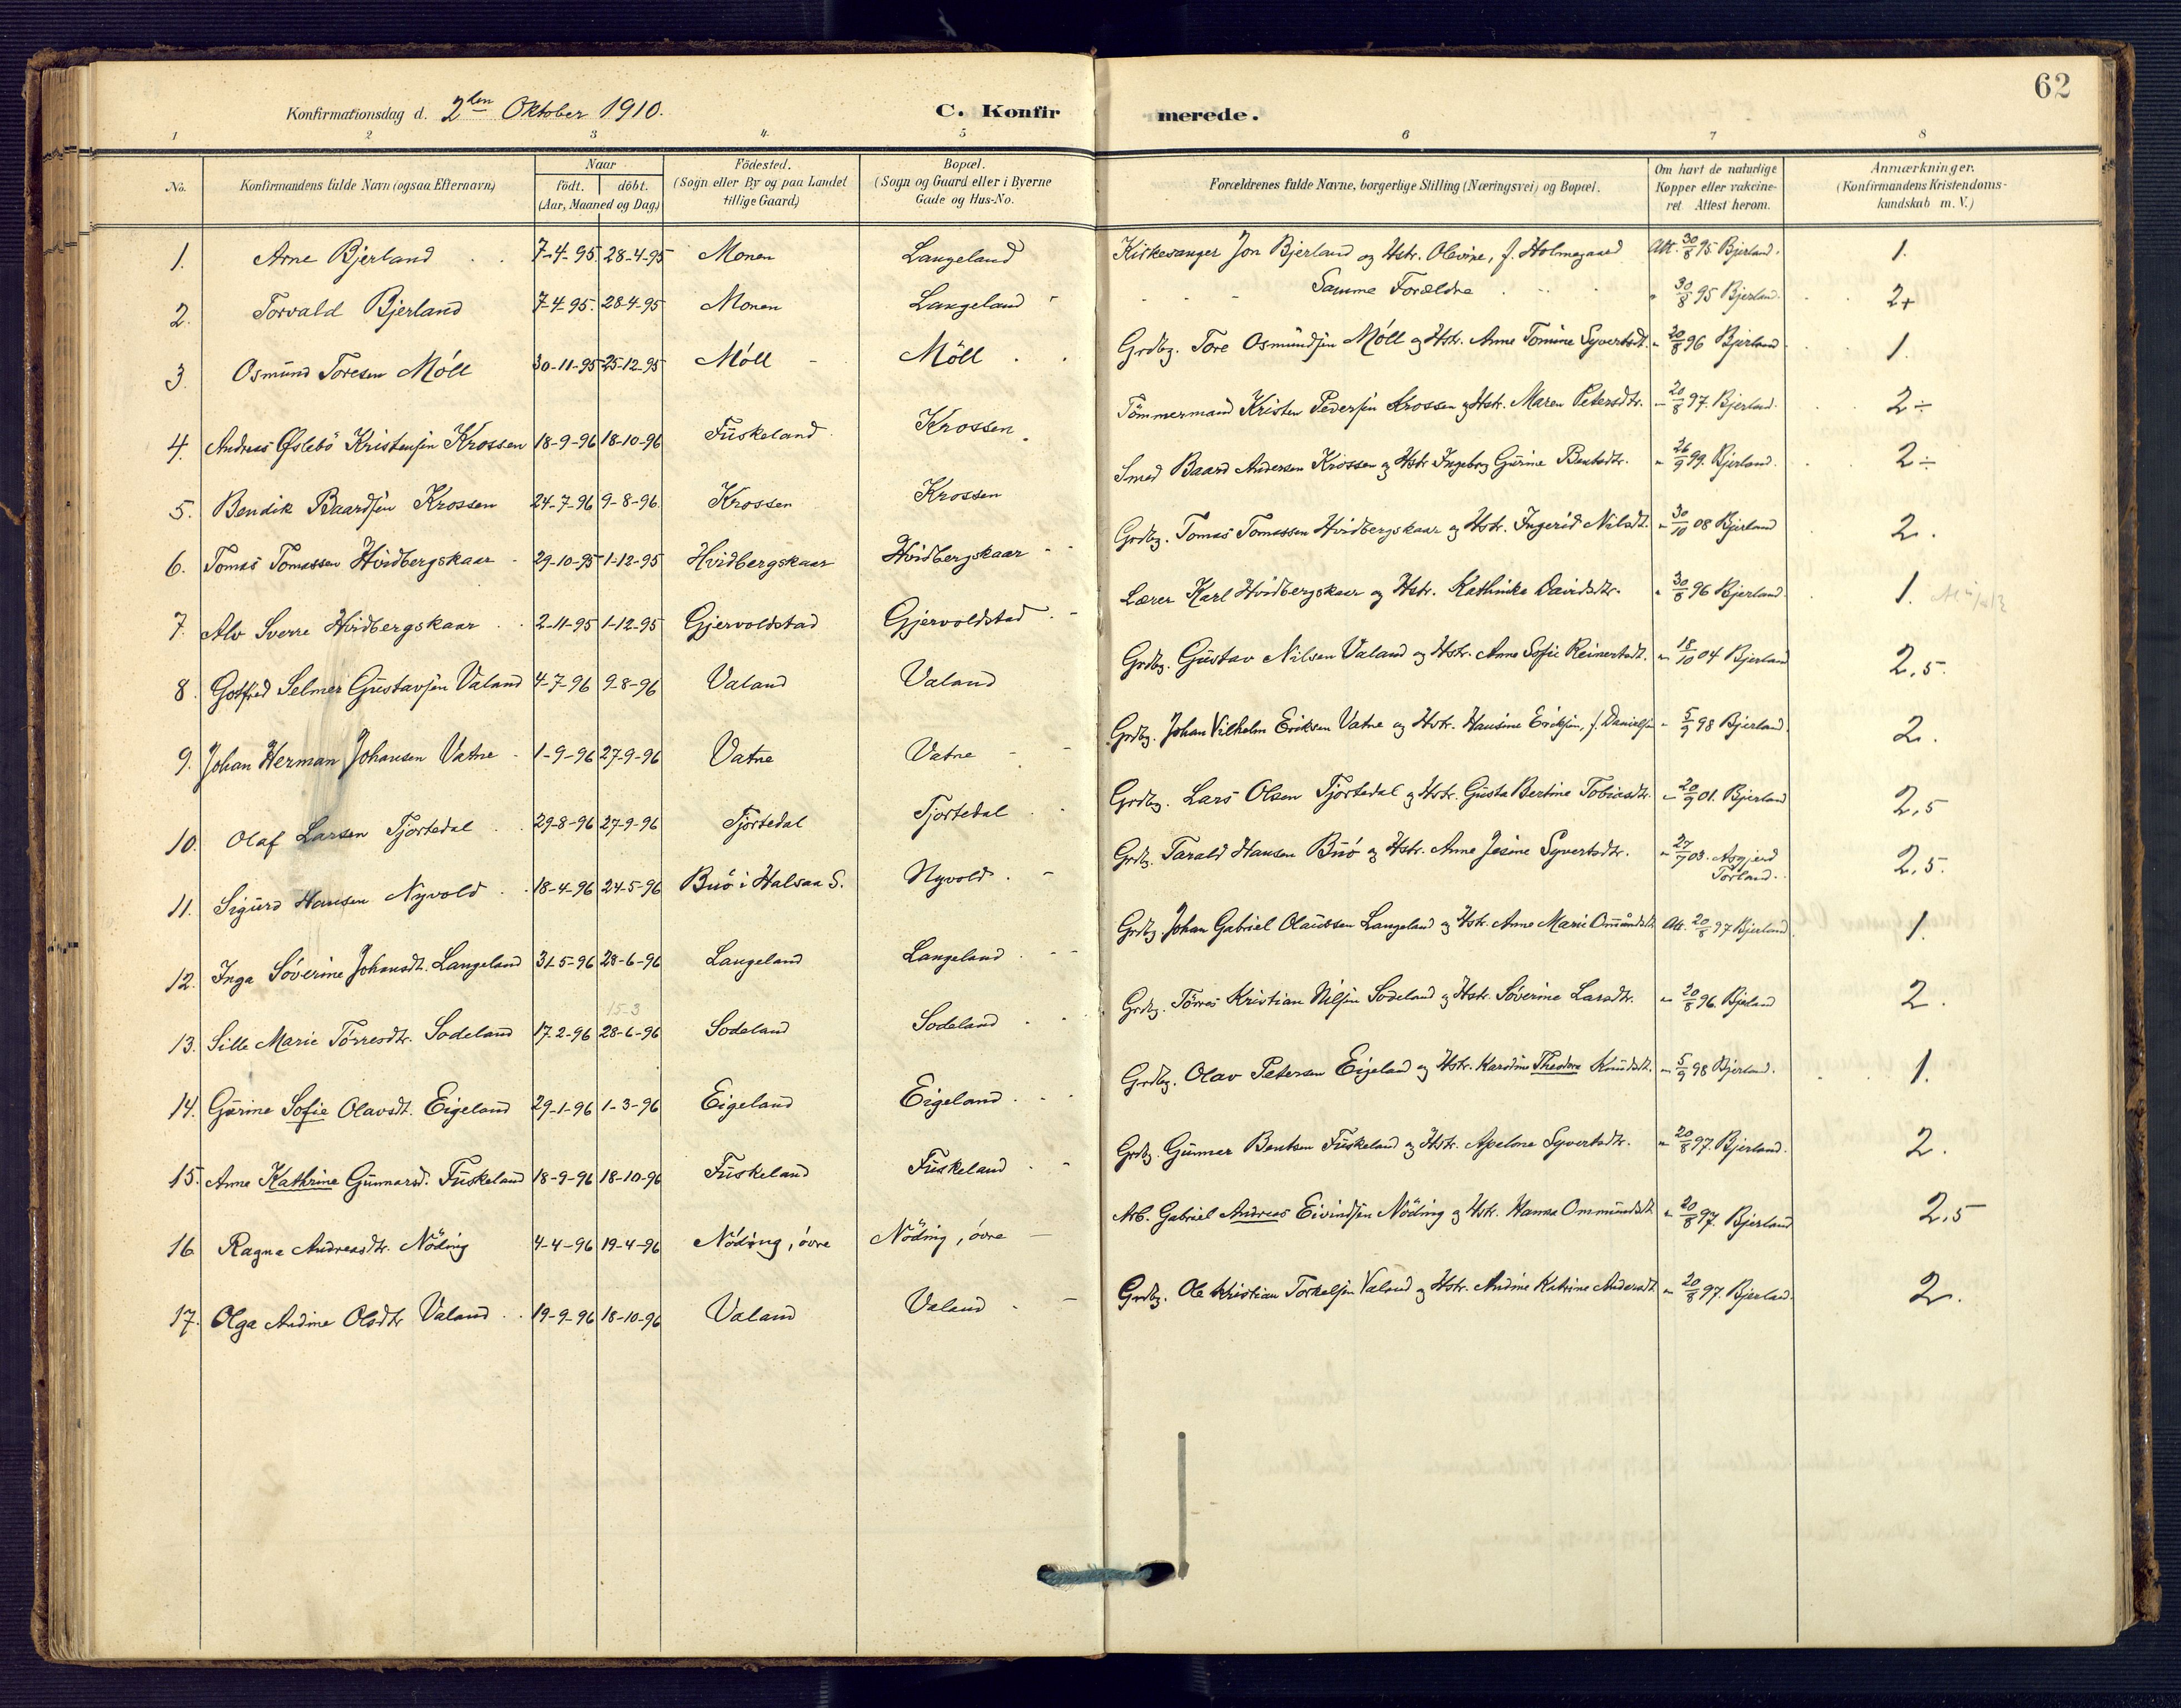 62
Konfirmationsdag d. 2den Oktober 1910. C. Konfirmerede.
1 2 3 4. 5 6 7 8
No. Konfirmandens fulde Navn (ogsaa Efternavn) Naar födt. döbt. (Aar, Maaned og Dag) Födested. (Sogn eller By og paa Landet tillige Gaard) Bopæl. (Sogn og Gaard eller i Byerne Gade og Hus-No. Forældrenes fulde Navne, borgerlige Stilling (Næringsvei) og Bopæl. Om havt de naturlige Kopper eller vakcineret Attest herom. Anmærkninger. (Konfirmandens Kristendomskundskab m. V.)
1. Arne Bjerland 7-4-95. 28-4-95 Monen Langeland Kirkesanger Jon Bjerland og Hstr. Olevine, f. Holmegaard Att. 30/8 95 Bjerland. 1.
2. Torvald Bjerland 7-4-95. 28-4-95 Monen Langeland - Samme Forældre " 30/8 95 Bjerland. 2+
3. Osmund Toresen Möll 30-11-95 25-12-95 Möll - Möll Grdbg. Tore Osmundsen Möll og Hstr. Anne Tomine Syvertsdt. " 20/8 96 Bjerland 1.
4. Andreas Øslebö Kristensen Krossen 18-9-96 18-10-96 Fuskeland Krossen. Tömmermand Kristen Pedersen Krossen og Hstr. Maren Petersdtr. - 20/8 97. Bjerland. 2÷
5. Bendik Baardsen Krossen 24-7-96 9-8-96. Krossen Krossen Smed Baard Andersen Krossen og Hstr Ingeborg Gurine Bentsdtr. " 26/9 99. Bjerland. 2÷
6. Tomas Tomassen Hvidbergskaar 29-10-95 1-12-95 Hvidbergskaar Hvidbergskaar Grdbg. Tomas Tomassen Hvidbergskaar og Hstr. Ingerid Nilsdt. " 30/10 08 Bjerland 2.
7. Alv Sverre Hvidbergskaar 2-11-95 1-12-95 Gjervoldstad Gjervoldstad Lærer Karl Hvidbergskaar og Hstr. Kathinka Davidsdtr. " 30/8 96 Bjerland. 1.
8. Gotfred Selmer Gustavsen Valand 4-7-96 9-8-96 Valand Valand Grdbg. Gustav Nilsen Valand og Hstr. Anne Sofie Reinertsdt. " 18/10 04 Bjerland 2,5.
9. Johan Herman Johansen Vatne 1-9-96 27-9-96 Vatne Vatne Grdbg. Johan Vilhelm Eriksen Vatne og Hstr. Hansine Eriksen, f. Danielsen " 5/9 98 Bjerland. 2.
10. Olaf Larsen Tjortedal 29-8-96 27-9-96 Tjortedal Tjortedal Grdbg. Lars Olsen Tjortedal og Hstr. Gusta Bertine Tobiasdtr. - 20/9 01. Bjerland 2,5
11. Sigurd Hansen Nyvold 18-4-96 24-5-96 Buö i Halsaa S. Nyvold Grdbg. Tarald Hansen Buö og Hstr. Anne Jesine Syvertsdtr. " 27/7 03. Asgjerd Torland. 2,5.
12. Inga Söverine Johansdt. Langeland 31-5-96 28-6-96 Langeland Langeland Grdbg. Johan Gabriel Olaubsen Langeland og Hstr. Anne Marie Ommundsdt. Att. 20/8 97 Bjerland. 1.
15-3
13. Sille Marie Törresdtr. Sodeland 17-2-96 28-6-96 Sodeland Sodeland Grdbg. Törres Kristian Nilsen Sodeland og Hstr. Söverine Larsdtr. " 20/8 96. Bjerland 2.
14. Gurine Sofie Olavsdt. Eigeland 29-1-96 1-3-96 Eigeland Eigeland Grdbg. Olav Petersen Eigeland og Hstr. Karoline Theodora Knudsdt. " 5/9 98 Bjerland. 1.
15. Anne Kathrine Gunnarsd. Fuskeland 18-9-96 18-10-96 Fuskeland Fuskeland Grdbg. Gunnar Bentsen Fuskeland og Hstr. Apelone Syvertsdtr. " 20/8 97. Bjerland. 2.
16 Ragna Andreasdtr. Nöding 4-4-96 19-4-96 Nöding, övre Nöding, övre Arb. Gabriel Andreas Eivindsen Nöding og Hstr. Hanna Ommundsdt. " 20/8 97. Bjerland 2,5
17. Olga Andine Olsdtr Valand 19-9-96 18-10-96 Valand Valand Grdbg. Ole Kristian Torkelsen Valand og Hstr. Andine Katrine Andersdt. " 20/8 97. Bjerland. 2.